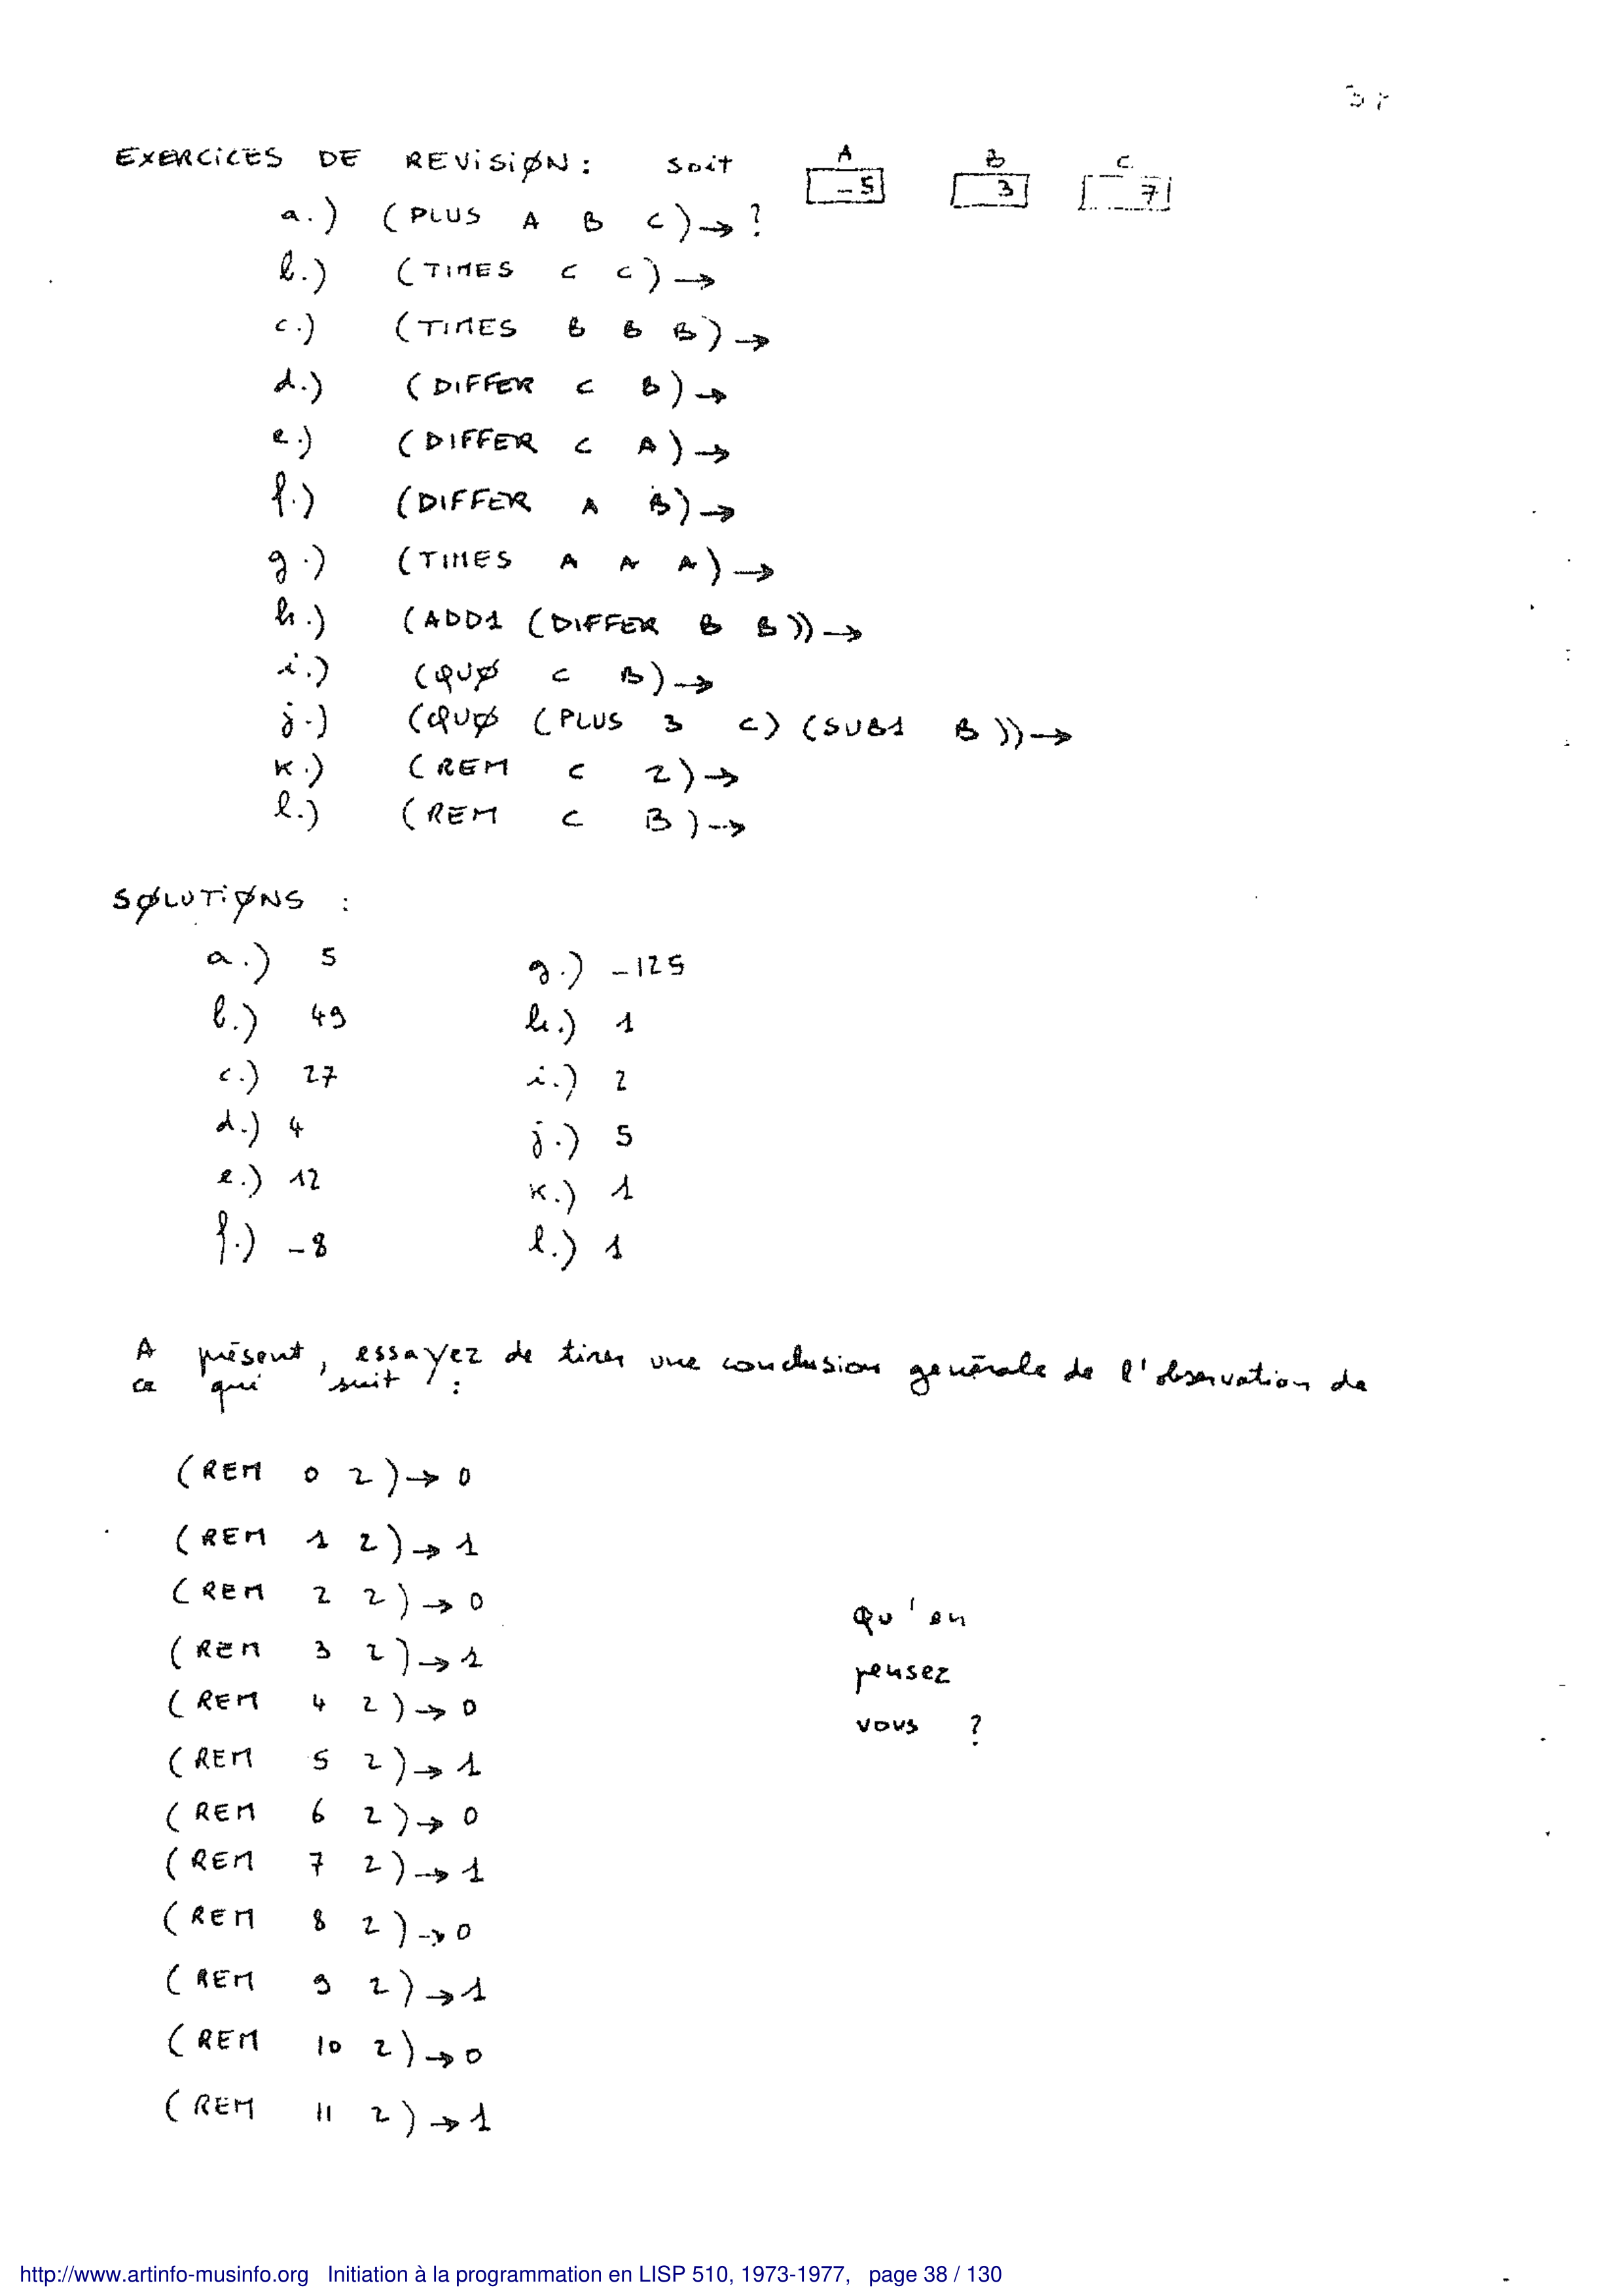 EXERCICES DE REVISIØN : soit A B C
-5 3 7
a.) (PLUS A B C) → ?
b.) (TIMES C C) →
c.) (TIMES B B B) →
d.) (DIFFER C B) →
e.) (DIFFER C A) →
f.) (DIFFER A B) →
g.) (TIMES A A A) →
h.) (ADD1 (DIFFER B B)) →
i.) (QUØ C B) →
j.) (QUØ (PLUS 3 C) (SUB1 B)) →
k.) (REM C 2) →
l.) (REM C B) →
SØLUTIØNS :
a.) 5 g.) -125
b.) 49 h.) 1
c.) 27 i.) 2
d.) 4 j.) 5
e.) 12 k.) 1
f.) -8 l.) 1
A présent, essayez de tirer une conclusion générale de l'observation de
ce qui suit :
(REM 0 2) → 0
(REM 1 2) → 1
(REM 2 2) → 0
(REM 3 2) → 1
(REM 4 2) → 0
(REM 5 2) → 1
(REM 6 2) → 0
(REM 7 2) → 1
(REM 8 2) → 0
(REM 9 2) → 1
(REM 10 2) → 0
(REM 11 2) → 1
Qu'en
pensez
vous ?
http://www.artinfo-musinfo.org Initiation à la programmation en LISP 510, 1973-1977, page 38 / 130